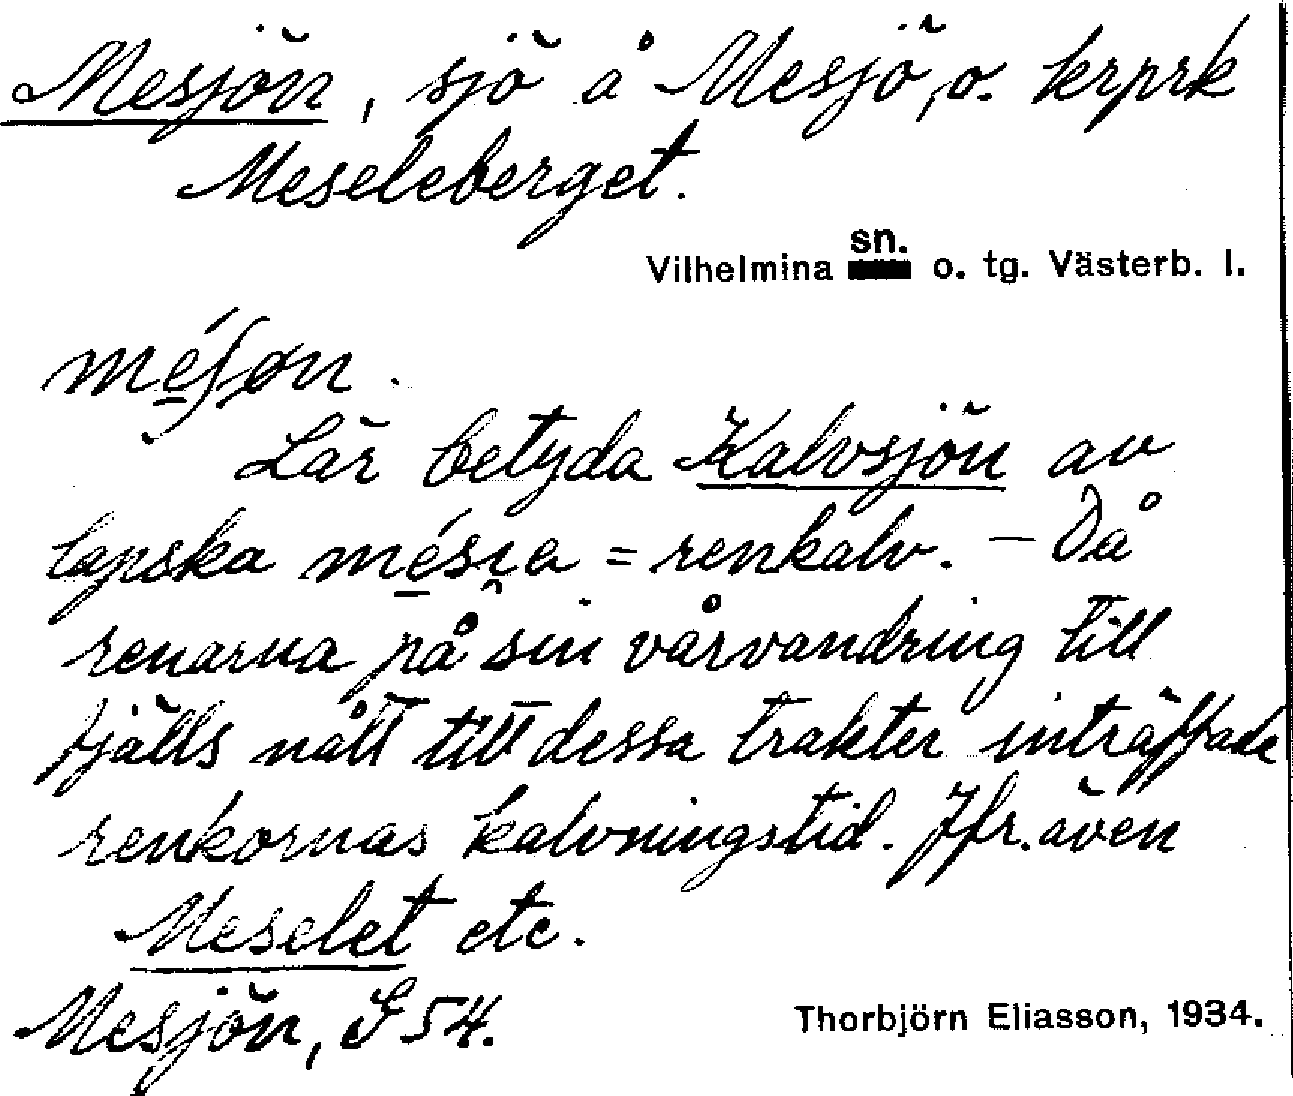 Mesjön, sjö å Mesjö, o. krprk
Meseleberget.
sn.
Vilhelmina o. tg. Västerb. l.
Lär betyda Kalvsjön av
lapska = renkalv. – Då
renarna på sin vårvandring till
fjälls nått till dessa trakter inträffade
renkornas kalvningstid. Jfr. även
Meselet etc.
Mesjön, G 54.
Thorbjörn Eliasson, 1934.